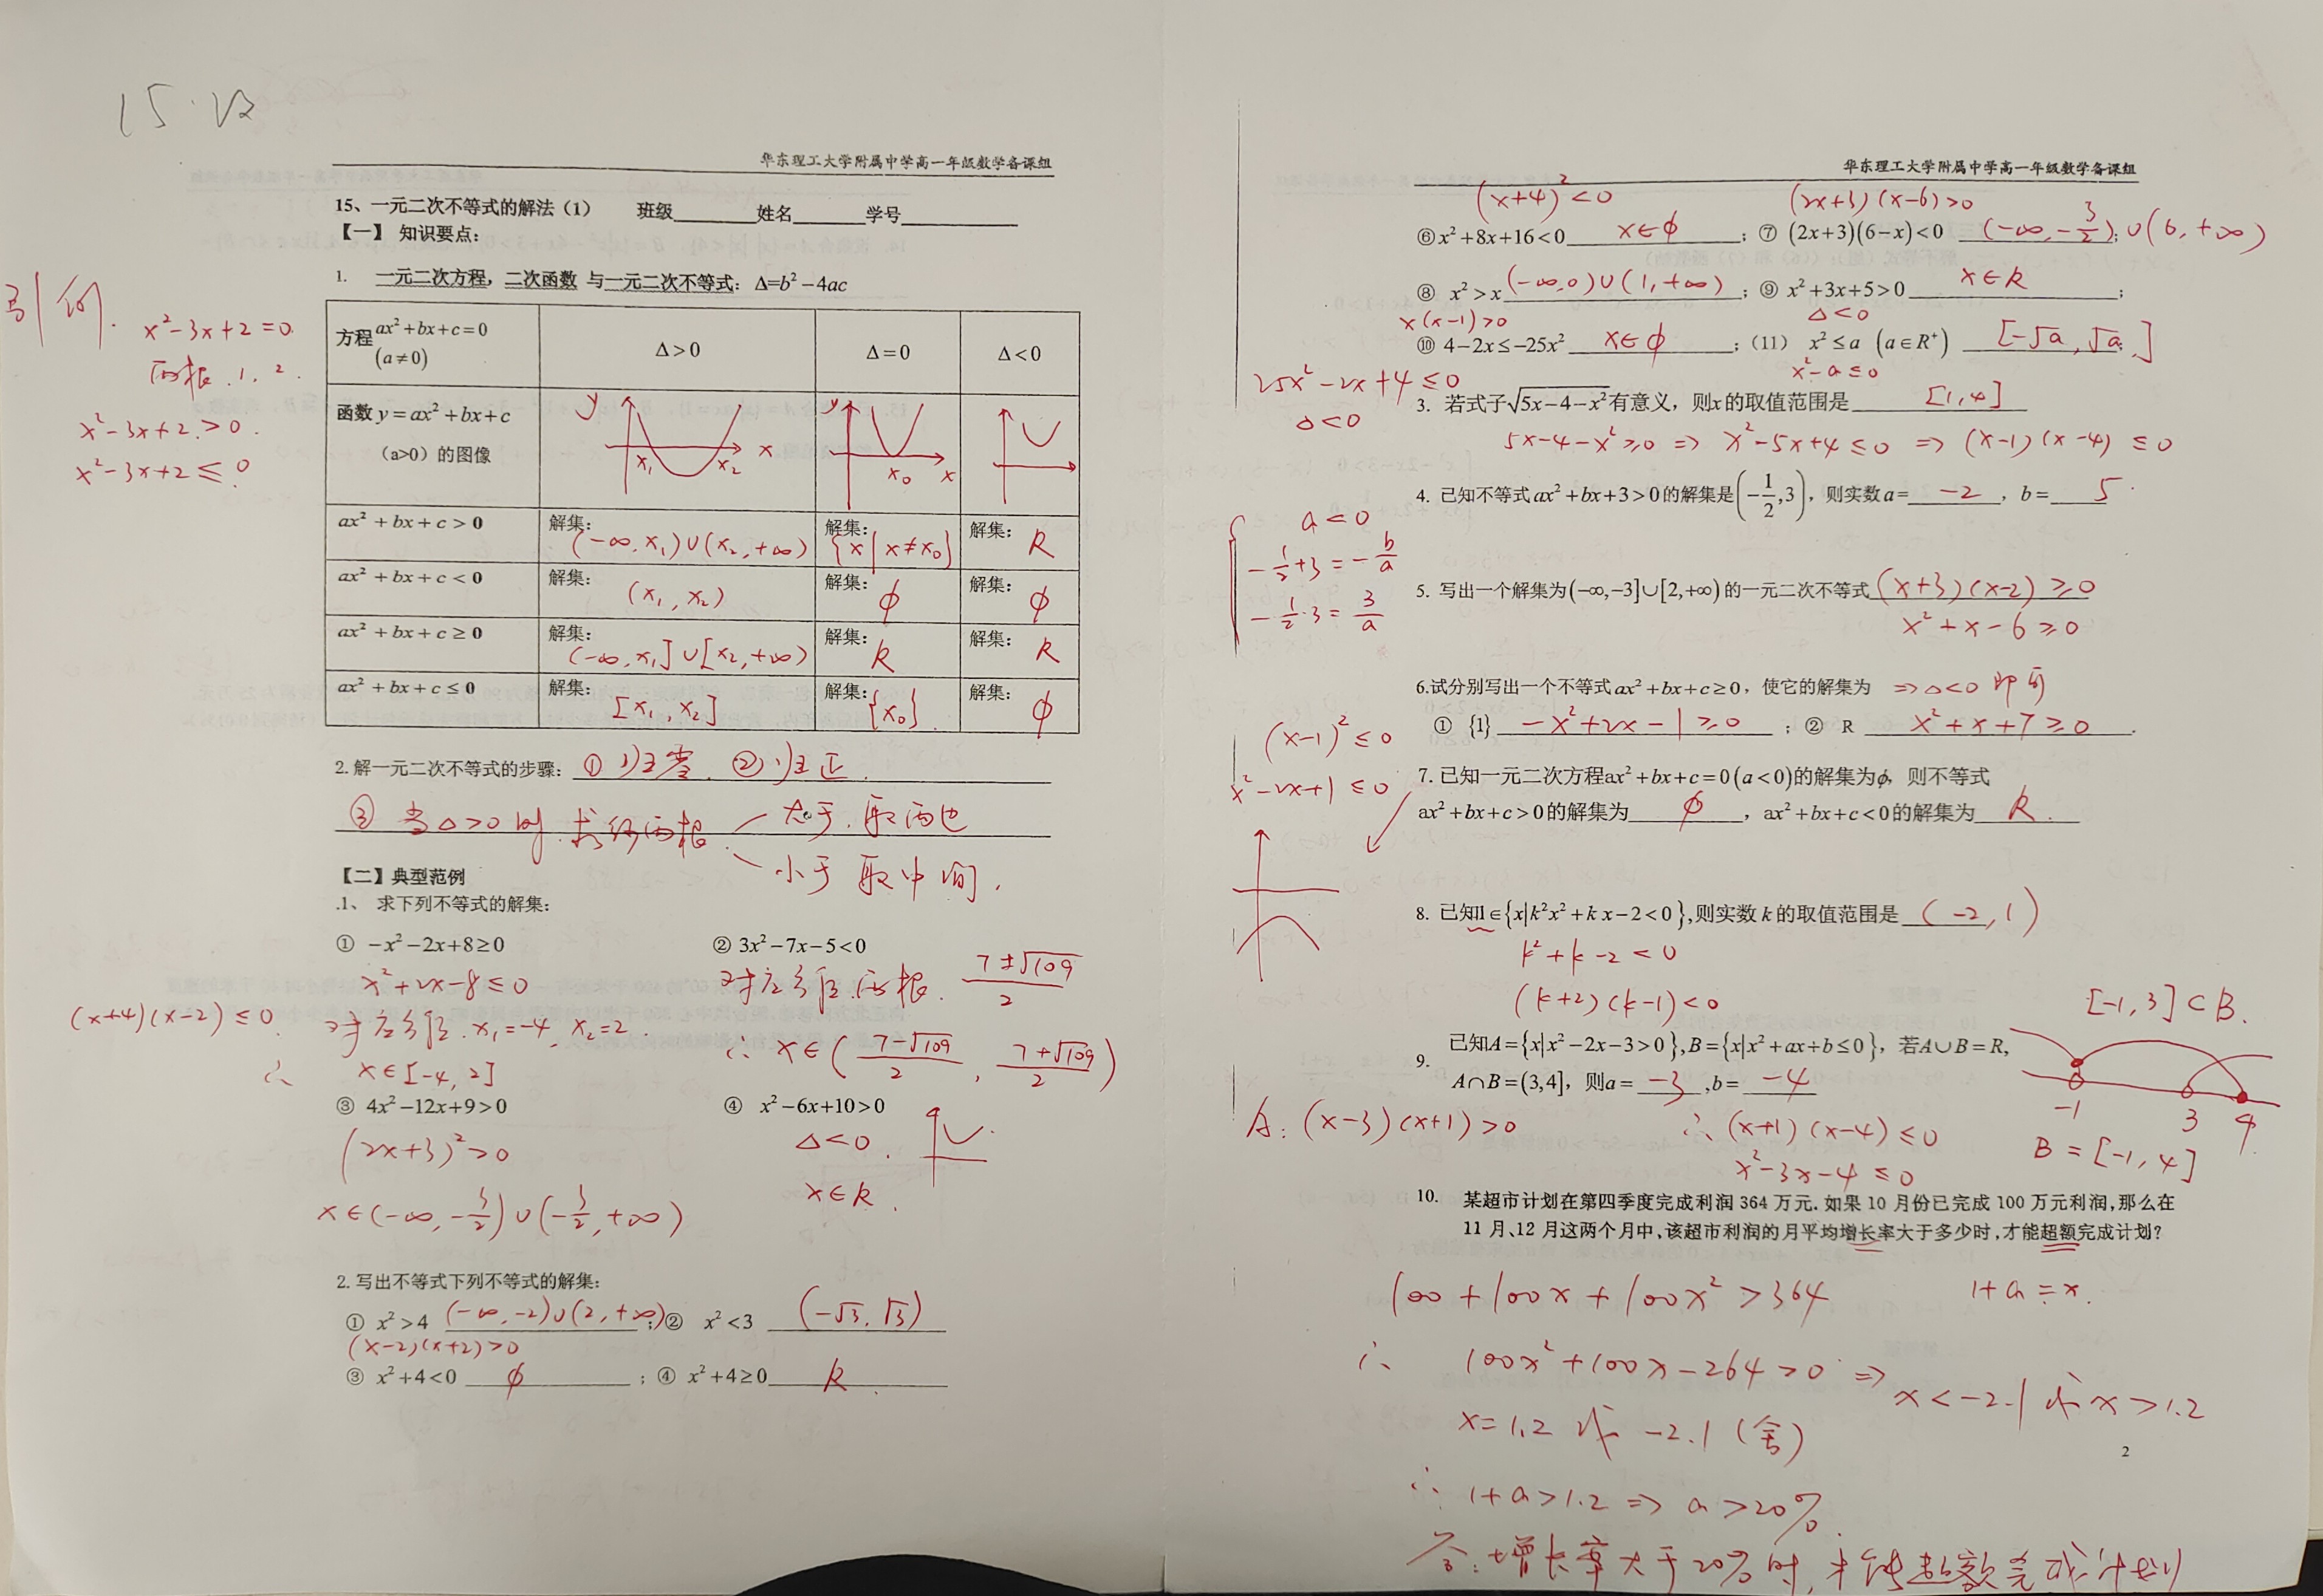 15.√2
华东理工大学附属中学高一年级数学备课组
15、一元二次不等式的解法（1） 班级______姓名______学号______
【一】 知识要点:
1. 一元二次方程，二次函数 与一元二次不等式：Δ=b²−4ac
引例.
x²−3x+2=0
两根.1, 2.
x²−3x+2>0.
x²−3x+2≤0
方程 ax²+bx+c=0 (a≠0) Δ>0 Δ=0 Δ<0
函数 y=ax²+bx+c （a>0）的图像 y x₁ x₂ x y x₀ x
ax²+bx+c>0 解集: (−∞,x₁)∪(x₂,+∞) 解集: {x|x≠x₀} 解集: R
ax²+bx+c<0 解集: (x₁,x₂) 解集: ϕ 解集: ϕ
ax²+bx+c≥0 解集: (−∞,x₁]∪[x₂,+∞) 解集: R 解集: R
ax²+bx+c≤0 解集: [x₁,x₂] 解集: {x₀}. 解集: ϕ
2. 解一元二次不等式的步骤: ①归零. ②归正.
③ 当Δ>0时.求得两根. 大于.取两边
小于 取中间.
【二】典型范例
.1、 求下列不等式的解集:
① −x²−2x+8≥0 ② 3x²−7x−5<0
x²+2x−8≤0
(x+4)(x−2)≤0.
对应方程.x₁=−4, x₂=2.
∴ x∈[−4, 2]
对应方程.两根. (7±√109)/2
∴ x∈((7−√109)/2, (7+√109)/2)
③ 4x²−12x+9>0 ④ x²−6x+10>0
(2x+3)²>0
x∈(−∞,−3/2)∪(−3/2,+∞)
Δ<0.
x∈R.
2. 写出不等式下列不等式的解集:
① x²>4 (−∞,−2)∪(2,+∞);② x²<3 (−√3,√3)
(x−2)(x+2)>0
③ x²+4<0 ϕ ; ④ x²+4≥0 R
华东理工大学附属中学高一年级数学备课组
(x+4)²<0 (2x+3)(x−6)>0
⑥ x²+8x+16<0 x∈ϕ ; ⑦ (2x+3)(6−x)<0 (−∞,−3/2);∪(6,+∞)
⑧ x²>x (−∞,0)∪(1,+∞) ; ⑨ x²+3x+5>0 x∈R ;
x(x−1)>0 Δ<0
⑩ 4−2x≤−25x² x∈ϕ ; (11) x²≤a (a∈R⁺) [−√a,√a];
25x²−2x+4≤0 x²−a≤0
Δ<0
3. 若式子√(5x−4−x²)有意义，则x的取值范围是 [1,4]
5x−4−x²≥0 ⇒ x²−5x+4≤0 ⇒ (x−1)(x−4)≤0
4. 已知不等式ax²+bx+3>0的解集是(−1/2,3)，则实数a= −2 ，b= 5
a<0
−1/2+3=−b/a
−1/2·3=3/a
5. 写出一个解集为(−∞,−3]∪[2,+∞)的一元二次不等式 (x+3)(x−2)≥0
x²+x−6≥0
6.试分别写出一个不等式ax²+bx+c≥0，使它的解集为 ⇒Δ<0即可
① {1} −x²+2x−1≥0 ; ② R x²+x+7≥0 .
(x−1)²≤0
x²−2x+1≤0
7. 已知一元二次方程ax²+bx+c=0(a<0)的解集为ϕ，则不等式
ax²+bx+c>0的解集为 ϕ ，ax²+bx+c<0的解集为 R.
8. 已知1∈{x|k²x²+kx−2<0},则实数k的取值范围是 (−2,1)
k²+k−2<0
(k+2)(k−1)<0
9. 已知A={x|x²−2x−3>0},B={x|x²+ax+b≤0}，若A∪B=R,
A∩B=(3,4]，则a= −3 ,b= −4
[−1,3]⊂B.
−1 3 4
A: (x−3)(x+1)>0
∴ (x+1)(x−4)≤0
x²−3x−4≤0
B=[−1,4]
10. 某超市计划在第四季度完成利润364万元.如果10月份已完成100万元利润,那么在
11月、12月这两个月中,该超市利润的月平均增长率大于多少时,才能超额完成计划?
100+100x+100x²>364 1+a=x.
∴ 100x²+100x−264>0 ⇒ x<−2.1或x>1.2
x=1.2 或 −2.1 (舍)
∴ 1+a>1.2 ⇒ a>20%.
答:增长率大于20%时,才能超额完成计划
2